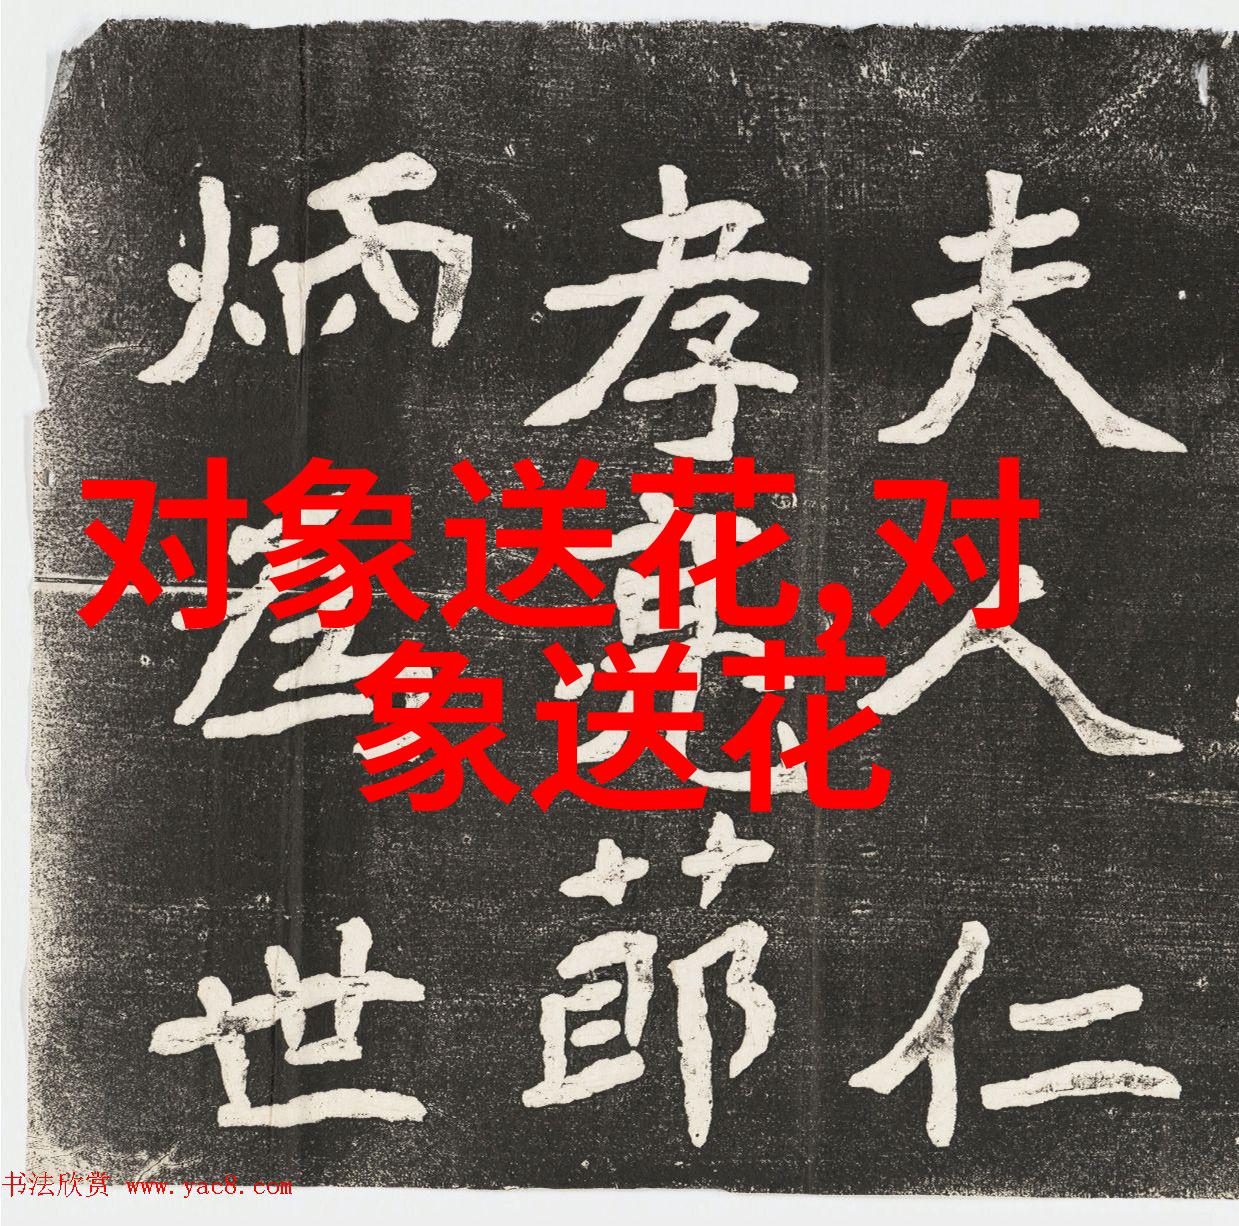 夫人仁
孝
炳
世
节
对象送花,对
象送花
书法欣赏 www.yac8.com